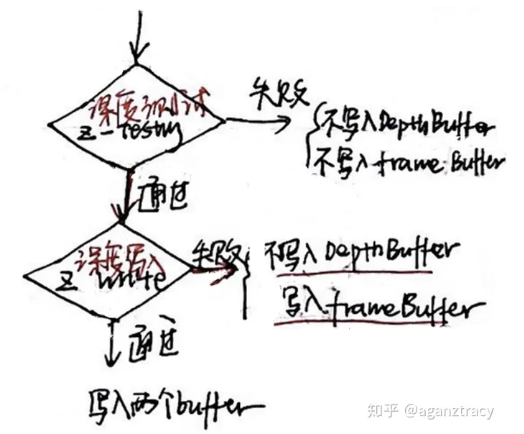 深度测试
z-testing
失败
不写入DepthBuffer
不写入frameBuffer
通过
深度写入
z write
失败
不写入DepthBuffer
写入frameBuffer
通过
写入两个buffer
知乎 @aganztracy